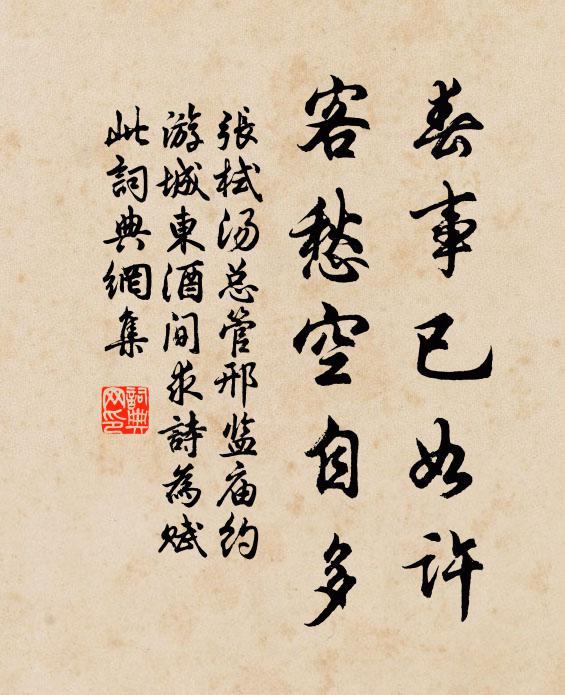 春事已如许
客愁空自多
張栻汤总管邢监庙约
游城東酒间求詩為赋
此詞典網集
詞典
网印